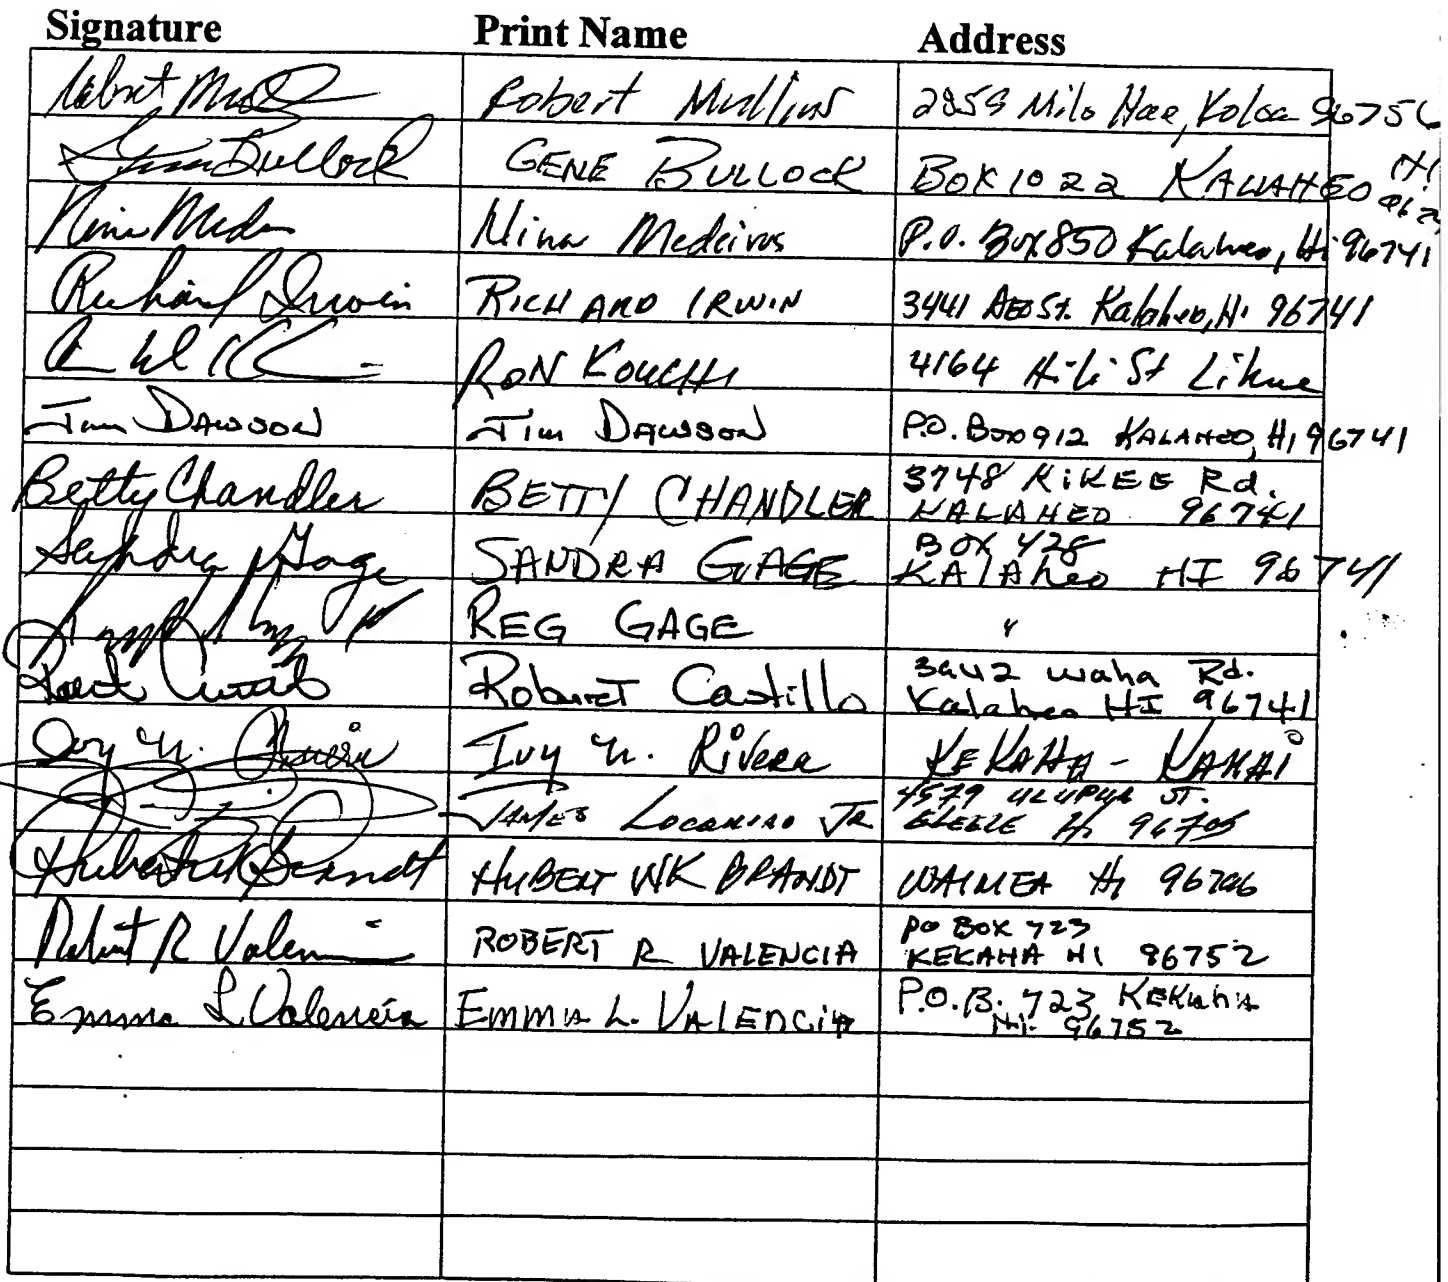 Signature Print Name Address
Robert Mullins Robert Mullins 2859 Milo Hae, Koloa 96756
Gene Bullock GENE BULLOCK BOX 1022 KALAHEO HI
Nina Medeiros P.O. Box 850 Kalaheo, Hi 96741
Richard Irwin RICHARD IRWIN 3441 AEO St. Kalaheo, Hi 96741
RON KOUCHI 4164 Hili St Lihue
Jim DAWSON Jim DAWSON P.O. Box 912 KALAHEO, HI 96741
Betty Chandler BETTY CHANDLER 3748 KIKEE Rd.
KALAHEO 96741
Sandra Gage SANDRA GAGE BOX 428
KALAheo HI 96741
REG GAGE "
Robert Castillo 3942 waha Rd.
Kalaheo HI 96741
Ivy N. Rivera Ivy N. Rivera KEKAHA - KAUAI
JAMES JR 4579 ST.
ELEELE HI 96705
Hubert WK Brandt HUBERT WK BRANDT WAIMEA HI 96796
Robert R Valencia ROBERT R VALENCIA PO BOX 723
KEKAHA HI 96752
Emma L. Valencia EMMA L. VALENCIA P.O.B. 723 KEKAHA
HI. 96752